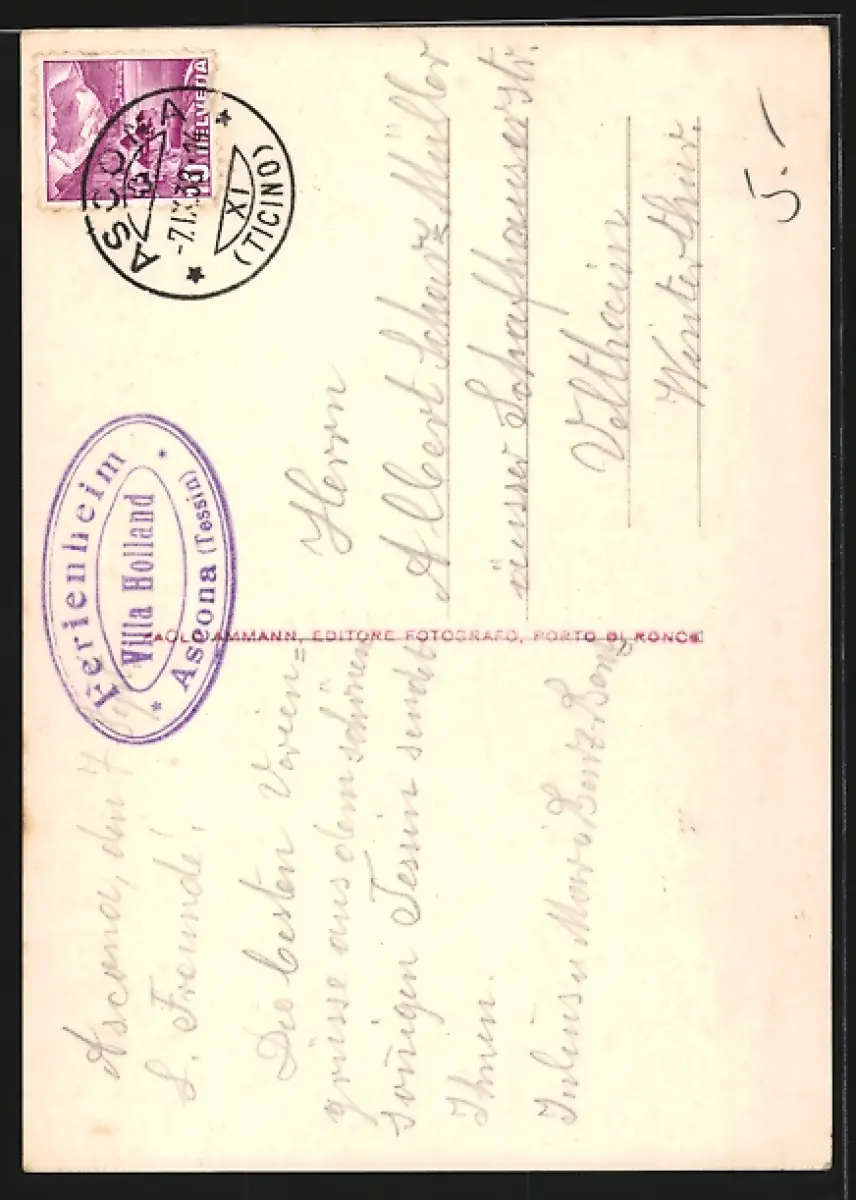 Ascona, den 7
L. Freunde!
Die besten Verien=
grüsse aus dem schönen
sonnigen Tessin sendet
Ihnen.
Julius u Marie Benz-Benz
Ferienheim
Villa Holland
* Ascona (Tessin) *
PAOLO AMMANN, EDITORE FOTOGRAFO, PORTO DI RONCO
HELVETIA
10
ASCONA
-7.IX.
XI
(TICINO)
Herrn
Albert Schwarz Müller
äusser Schafhauserstr.
Veltheim
Winterthur.
5.